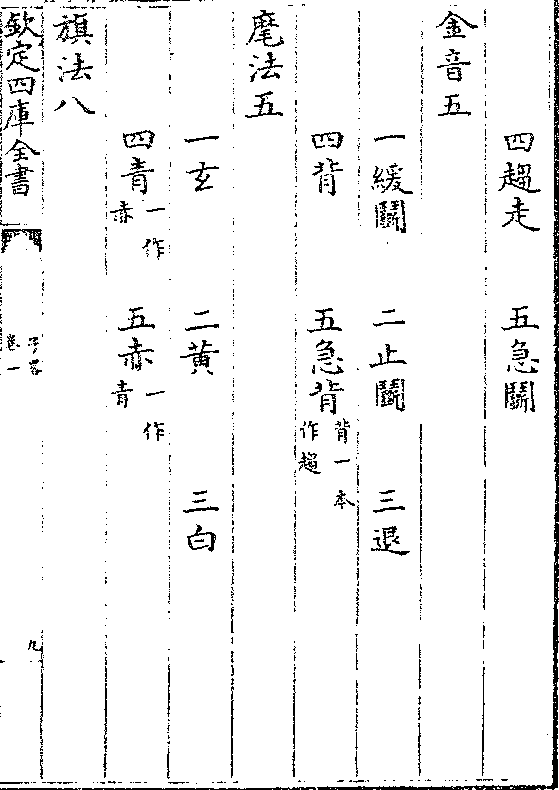 四趨走　五急鬭
金音五
一緩鬭　二止鬭　三退
四背　五急背背一本作趨
麾法五
一玄　二黃　三白
四青一作赤　五赤一作青
旗法八
欽定四庫全書　子畧卷一　九